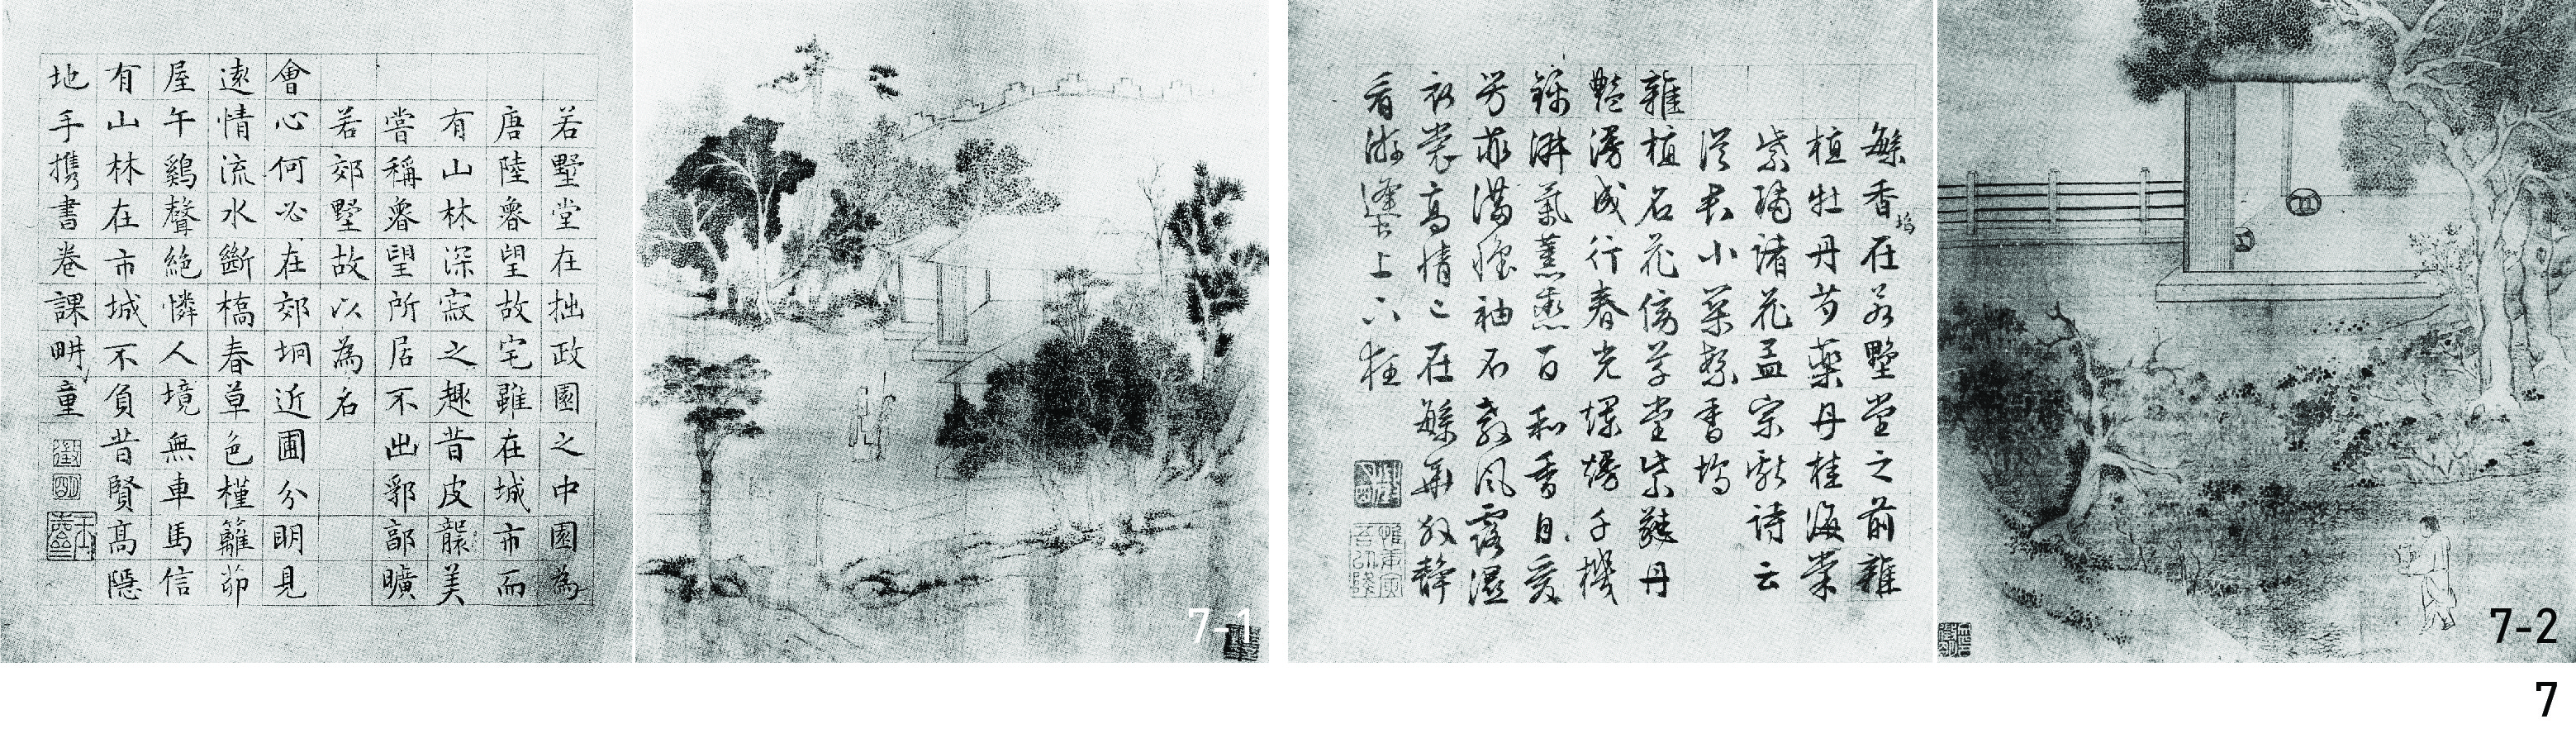 若墅堂在拙政園之中園為
唐陸魯望故宅雖在城市而
有山林深寂之趣昔皮襲美
嘗稱魯望所居不出郛郭曠
若郊墅故以為名
會心何必在郊坰近圃分明見
遠情流水斷橋春草色槿籬茆
屋午鷄聲絕憐人境無車馬信
有山林在市城不負昔賢高隱
地手攜書卷課畊童
徵明
7-1
繁香塢在若墅堂之前雜
植牡丹芍藥丹桂海棠
紫璚諸花孟宗獻詩云
從君小築繁香塢
雜植名花傍草堂紫蕤丹
豔漫成行春光爛熳千機
錦淑氣薰蒸百和香自愛
芳菲滿懷袖不教風露濕
衣裳高情已在繁華外靜
看游蜂上下狂
7-2
7